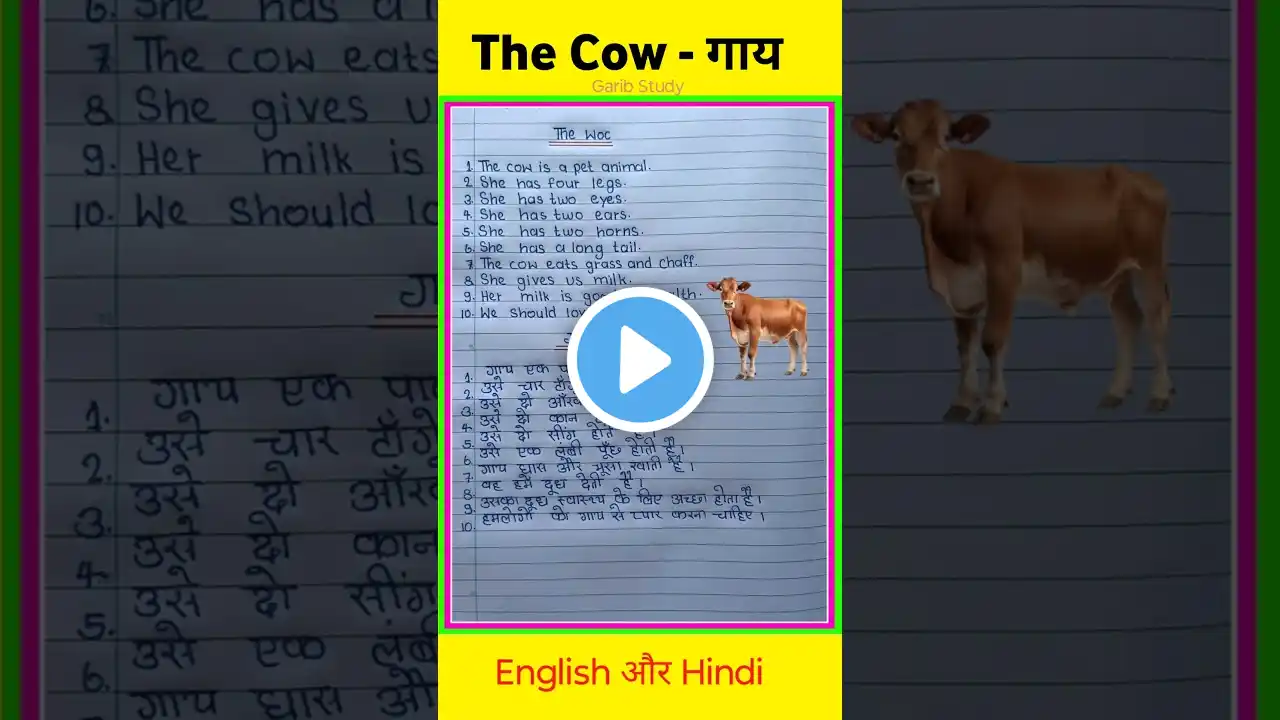 The Cow - गाय
Garib Study
The Woc
1. The cow is a pet animal.
2. She has four legs.
3. She has two eyes.
4. She has two ears.
5. She has two horns.
6. She has a long tail.
7. The cow eats grass and chaff.
8. She gives us milk.
9. Her milk is
10. We should
1. गाय एक
2. उसे चार
3. उसे दो
4. उसे दो कान
5. उसे दो सींग होते है।
6. उसे एक लंबी पूँछ होती है।
7. गाय घास और भूसा खाती है।
8. वह हमें दूध देती है।
9. उसका दूध स्वास्थ्य के लिए अच्छा होता है।
10. हमलोगों को गाय से प्यार करना चाहिए।
English और Hindi
6. She has a
7. The cow eats
8. She gives
9. Her milk is
10. We should
1. गाय एक
2. उसे चार
3. उसे दो
4. उसे दो कान
5. उसे दो
6. उसे एक
गाय घास